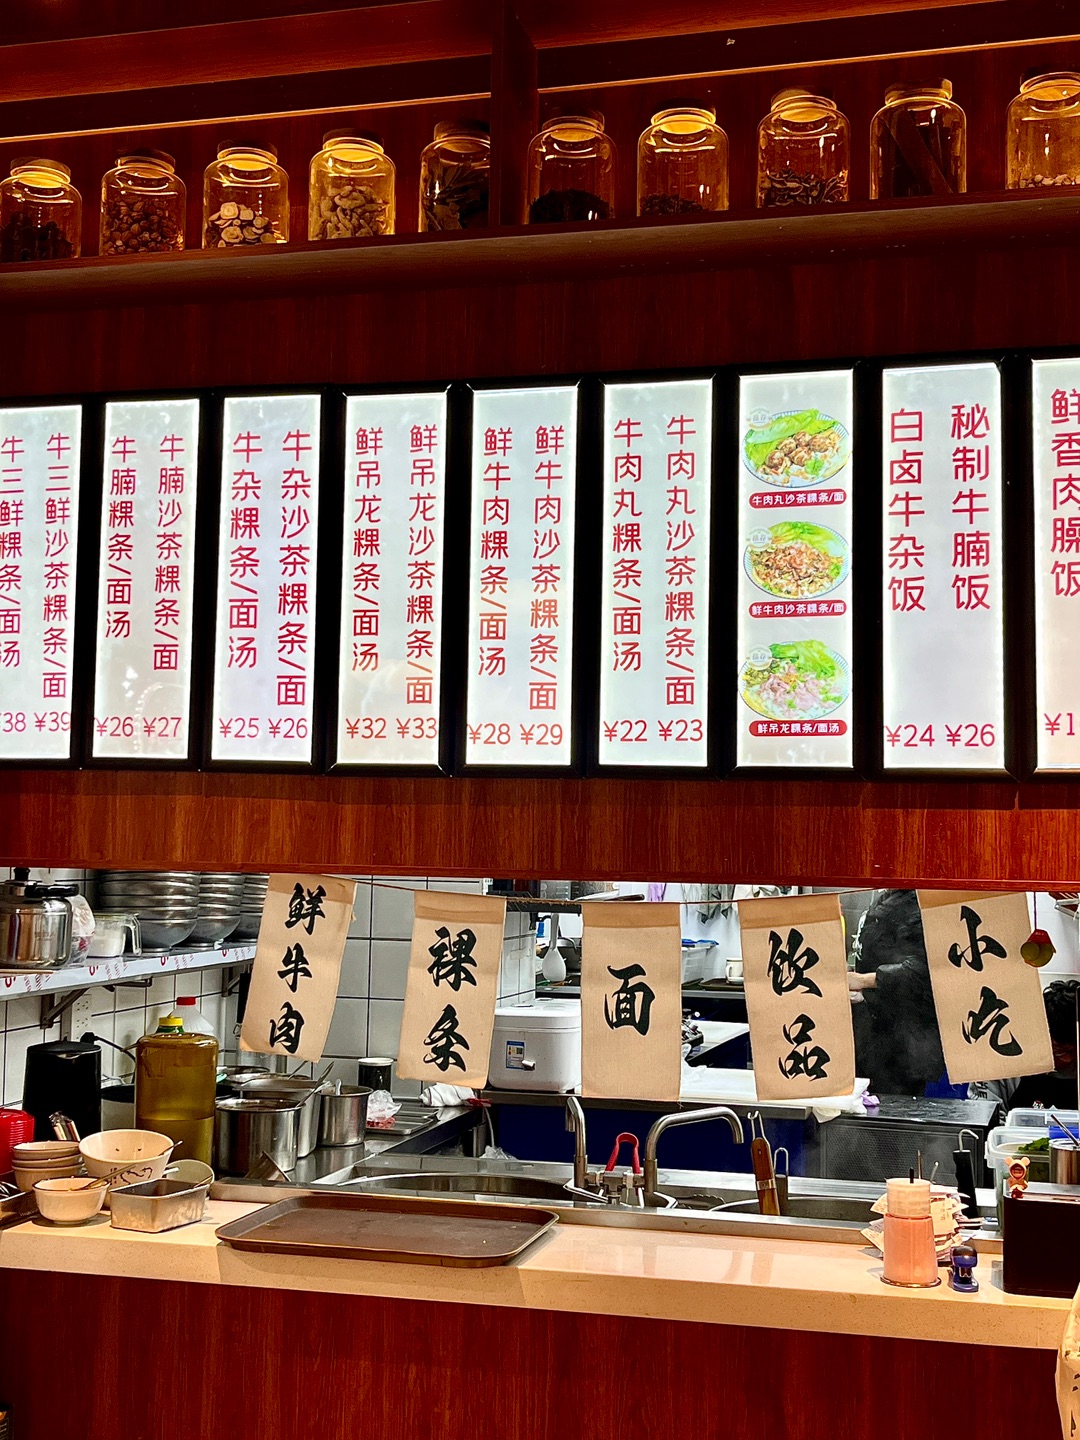 牛三鲜粿条/面汤
¥38
牛三鲜沙茶粿条/面
¥39
牛腩粿条/面汤
¥26
牛腩沙茶粿条/面
¥27
牛杂粿条/面汤
¥25
牛杂沙茶粿条/面
¥26
鲜吊龙粿条/面汤
¥32
鲜吊龙沙茶粿条/面
¥33
鲜牛肉粿条/面汤
¥28
鲜牛肉沙茶粿条/面
¥29
牛肉丸粿条/面汤
¥22
牛肉丸沙茶粿条/面
¥23
牛肉丸沙茶粿条/面
鲜牛肉沙茶粿条/面
鲜吊龙粿条/面汤
白卤牛杂饭
¥24
秘制牛腩饭
¥26
鲜香肉臊饭
¥1
鲜牛肉
粿条
面
饮品
小吃